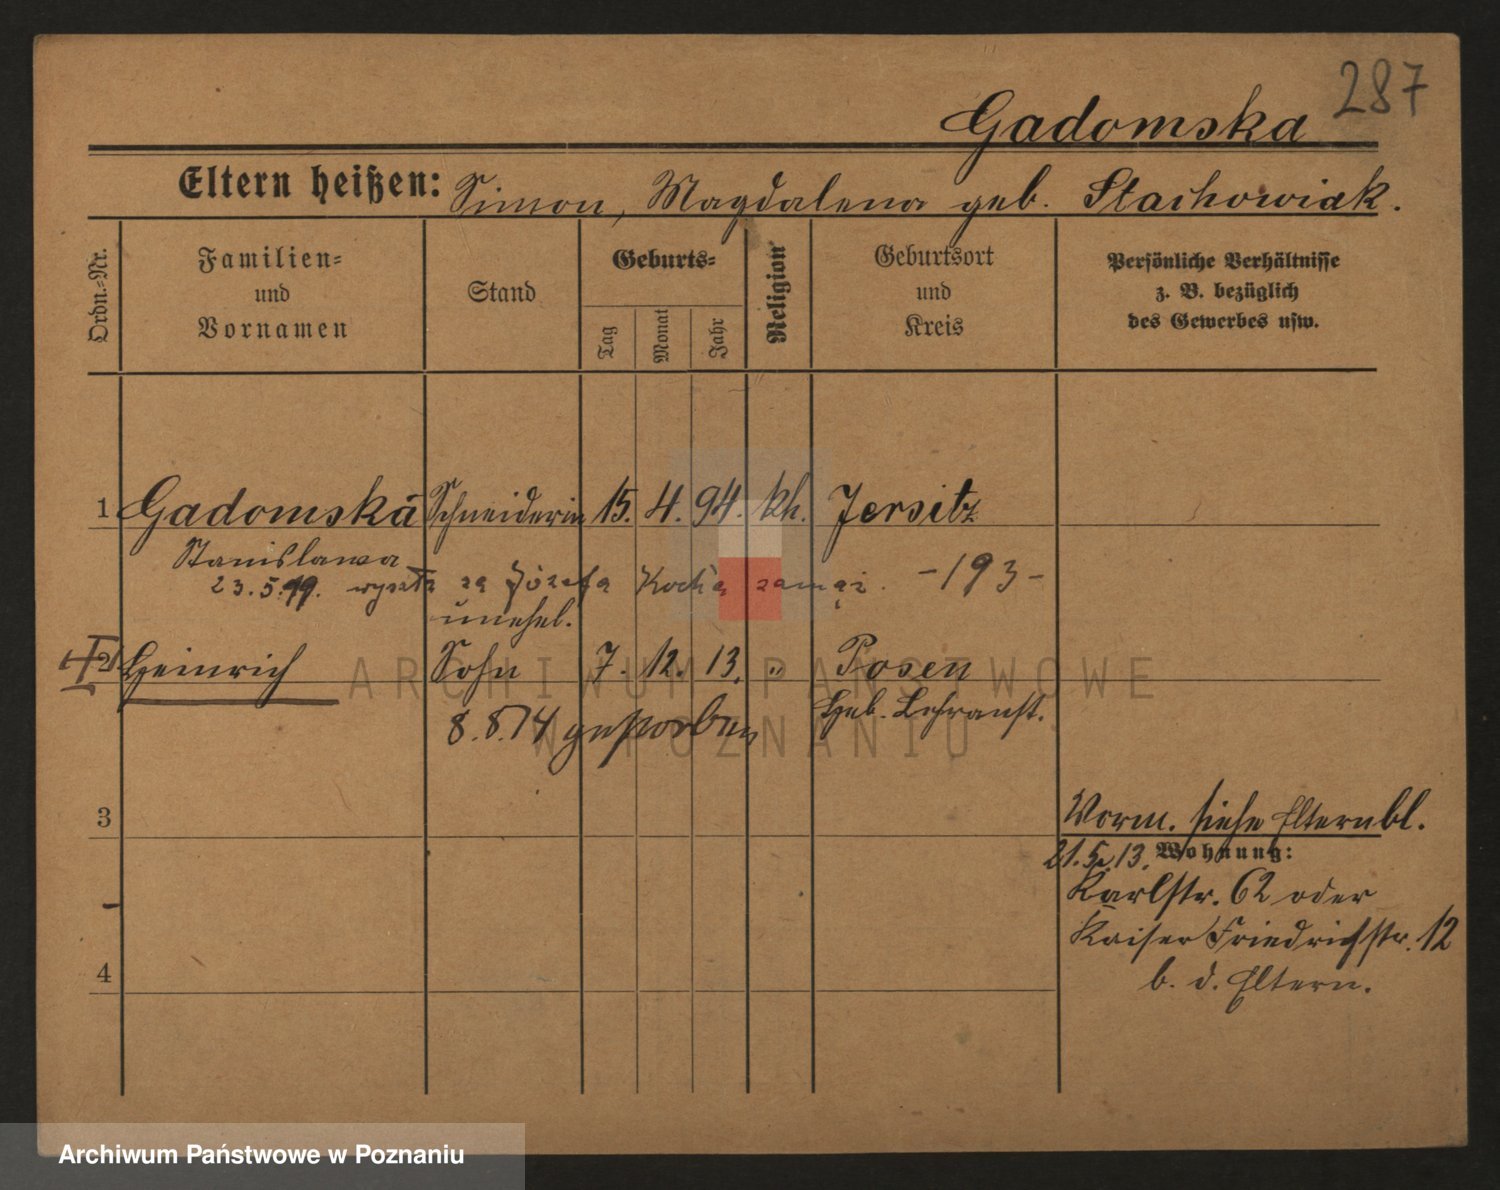 287
Gadomska
Eltern heißen: Simon, Magdalena geb. Stachowiak.
Ordn.-Nr.
Familien-
und
Vornamen
Stand
Geburts-
Tag
Monat
Jahr
Religion
Geburtsort
und
Kreis
Persönliche Verhältnisse
z. B. bezüglich
des Gewerbes usw.
1 Gadomska Schneiderin 15. 4. 94. kh. Jersitz
Stanislawa
23.5.19. wyszła za Józefa zamąż. -193-
unehel.
2 Heinrich Sohn 7. 12. 13. " Posen
Heb. Lehranst.
8.8.14 gestorben
3
Worm. siehe Elternbl.
21.5.13. Wohnung:
Karlstr. 62 oder
Kaiser Friedrichstr. 12
4
b. d. Eltern.
ARCHIWUM PAŃSTWOWE
W POZNANIU
Archiwum Państwowe w Poznaniu